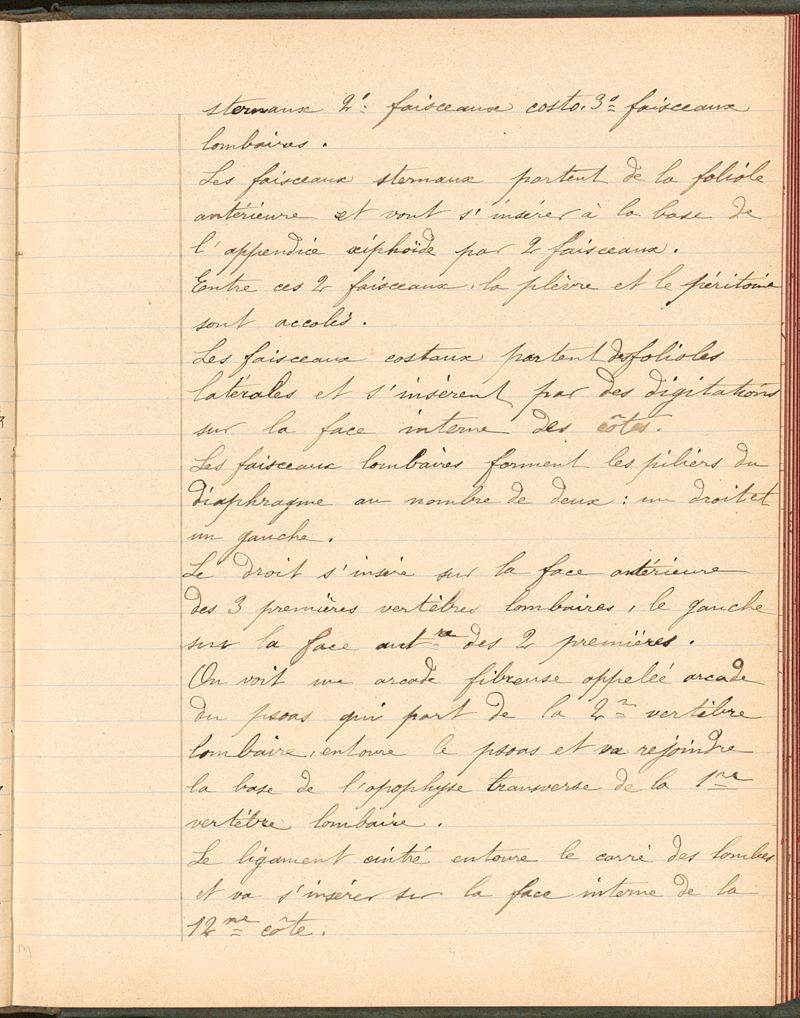 sternaux 2° faisceaux costo, 3° faisceaux
lombaires.
Les faisceaux sternaux partent de la foliole
antérieure et vont s'insérer à la base de
l'appendice xiphoïde par 2 faisceaux.
Entre ces 2 faisceaux, la plèvre et le péritoine
sont accolés.
Les faisceaux costaux partent des folioles
latérales et s'insèrent par des digitations
sur la face interne des côtes.
Les faisceaux lombaires forment les piliers du
diaphragme au nombre de deux : un droit et
un gauche.
Le droit s'insère sur la face antérieure
des 3 premières vertèbres lombaires, le gauche
sur la face antre des 2 premières.
On voit une arcade fibreuse appelée arcade
du psoas qui part de la 2e vertèbre
lombaire, entoure le psoas et va rejoindre
la base de l'apophyse transverse de la 1re
vertèbre lombaire.
Le ligament cintré entoure le carré des lombes
et va s'insérer sur la face interne de la
12me côte.